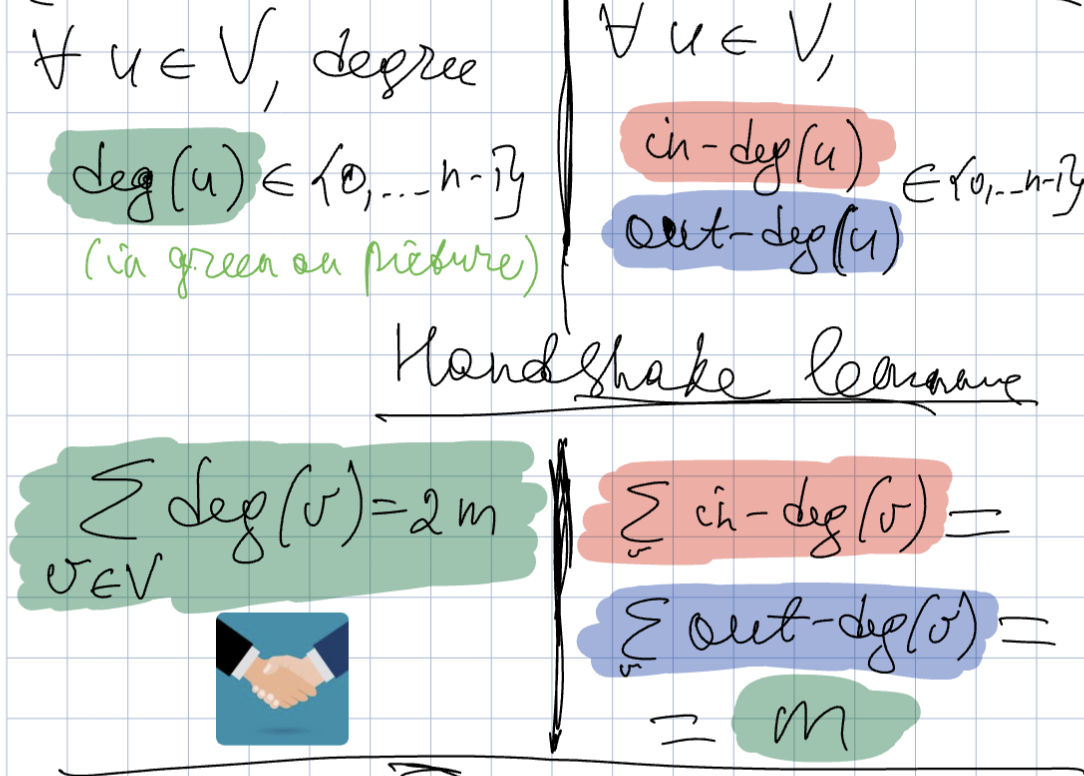 ∀ u ∈ V, degree
deg(u) ∈ {0,... n-1}
(in green on picture)
∀ u ∈ V,
in-deg(u)
out-deg(u)
∈ {0,.. n-1}
Handshake lemma
∑ deg(v) = 2m
v∈V
∑ in-deg(v) =
v
∑ out-deg(v) =
v
= m